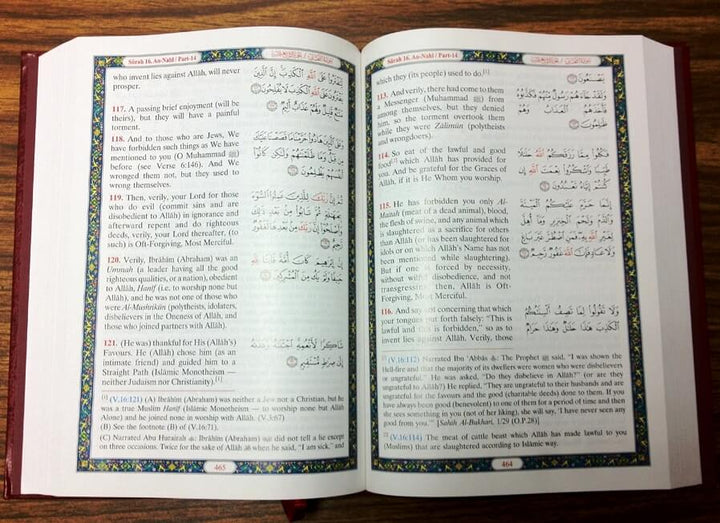 Sûrah 16. An-Nahl / Part-14
which they (its people) used to do.[1]
113. And verily, there had come to them
a Messenger (Muhammad ﷺ) from
among themselves, but they denied
him, so the torment overtook them
while they were Zâlimûn (polytheists
and wrongdoers).
114. So eat of the lawful and good
food[2] which Allâh has provided for
you. And be grateful for the Graces of
Allâh, if it is He Whom you worship.
115. He has forbidden you only Al-
Maitah (meat of a dead animal), blood,
the flesh of swine, and any animal which
is slaughtered as a sacrifice for others
than Allâh (or has been slaughtered for
idols or on which Allâh's Name has not
been mentioned while slaughtering).
But if one is forced by necessity,
without wilful disobedience, and not
transgressing; then, Allâh is Oft-
Forgiving, Most Merciful.
116. And say not concerning that which
your tongues put forth falsely: "This is
lawful and this is forbidden," so as to
invent lies against Allâh. Verily, those
يَصْنَعُونَ
وَلَقَدْ جَاءَهُمْ رَسُولٌ مِّنْهُمْ فَكَذَّبُوهُ
فَأَخَذَهُمُ الْعَذَابُ وَهُمْ
ظَالِمُونَ
فَكُلُوا مِمَّا رَزَقَكُمُ اللَّهُ حَلَالًا
طَيِّبًا وَاشْكُرُوا نِعْمَتَ اللَّهِ إِن
كُنتُمْ إِيَّاهُ تَعْبُدُونَ
إِنَّمَا حَرَّمَ عَلَيْكُمُ الْمَيْتَةَ
وَالدَّمَ وَلَحْمَ الْخِنزِيرِ وَمَا أُهِلَّ
لِغَيْرِ اللَّهِ بِهِ فَمَنِ اضْطُرَّ غَيْرَ بَاغٍ
وَلَا عَادٍ فَإِنَّ اللَّهَ غَفُورٌ رَّحِيمٌ
وَلَا تَقُولُوا لِمَا تَصِفُ أَلْسِنَتُكُمُ
الْكَذِبَ هَٰذَا حَلَالٌ وَهَٰذَا حَرَامٌ
[1] (V.16:112) Narrated Ibn 'Abbâs: The Prophet ﷺ said, "I was shown the
Hell-fire and that the majority of its dwellers were women who were disbelievers
or ungrateful." He was asked, "Do they disbelieve in Allâh?" (or are they
ungrateful to Allâh?) He replied, "They are ungrateful to their husbands and are
ungrateful for the favours and the good (charitable deeds) done to them. If you
have always been good (benevolent) to one of them for a period of time and then
she sees something in you (not of her liking), she will say, 'I have never seen any
good from you.'" [Sahih Al-Bukhari, 1/29 (O.P.28)]
[2] (V.16:114) The meat of cattle beast which Allâh has made lawful to you
(Muslims) that are slaughtered according to Islâmic way.
464
Sûrah 16. An-Nahl / Part-14
who invent lies against Allâh, will never
prosper.
117. A passing brief enjoyment (will be
theirs), but they will have a painful
torment.
118. And to those who are Jews, We
have forbidden such things as We have
mentioned to you (O Muhammad ﷺ)
before (see Verse 6:146). And We
wronged them not, but they used to
wrong themselves.
119. Then, verily, your Lord for those
who do evil (commit sins and are
disobedient to Allâh) in ignorance and
afterward repent and do righteous
deeds, verily, your Lord thereafter, (to
such) is Oft-Forgiving, Most Merciful.
120. Verily, Ibrâhîm (Abraham) was an
Ummah (a leader having all the good
righteous qualities, or a nation), obedient
to Allâh, Hanîf (i.e. to worship none but
Allâh), and he was not one of those who
were Al-Mushrikûn (polytheists, idolaters,
disbelievers in the Oneness of Allâh, and
those who joined partners with Allâh).
121. (He was) thankful for His (Allâh's)
Favours. He (Allâh) chose him (as an
intimate friend) and guided him to a
Straight Path (Islâmic Monotheism —
neither Judaism nor Christianity).[1]
لِّتَفْتَرُوا عَلَى اللَّهِ الْكَذِبَ إِنَّ الَّذِينَ
يَفْتَرُونَ عَلَى اللَّهِ الْكَذِبَ لَا يُفْلِحُونَ
مَتَاعٌ قَلِيلٌ وَلَهُمْ عَذَابٌ أَلِيمٌ
وَعَلَى الَّذِينَ هَادُوا حَرَّمْنَا مَا قَصَصْنَا عَلَيْكَ
مِن قَبْلُ وَمَا ظَلَمْنَاهُمْ وَلَٰكِن كَانُوا
أَنفُسَهُمْ يَظْلِمُونَ
ثُمَّ إِنَّ رَبَّكَ لِلَّذِينَ عَمِلُوا السُّوءَ
بِجَهَالَةٍ ثُمَّ تَابُوا مِن بَعْدِ ذَٰلِكَ
وَأَصْلَحُوا إِنَّ رَبَّكَ مِن بَعْدِهَا لَغَفُورٌ رَّحِيمٌ
إِنَّ إِبْرَاهِيمَ كَانَ أُمَّةً قَانِتًا لِّلَّهِ
حَنِيفًا وَلَمْ يَكُ مِنَ الْمُشْرِكِينَ
شَاكِرًا لِّأَنْعُمِهِ اجْتَبَاهُ وَهَدَاهُ
إِلَىٰ صِرَاطٍ مُّسْتَقِيمٍ
[1] (V.16:121) (A) Ibrâhîm (Abraham) was neither a Jew nor a Christian, but he
was a true Muslim Hanîf (Islâmic Monotheism — to worship none but Allâh
Alone) and he joined none in worship with Allâh. (V.3:67)
(B) See the footnote (B) of (V.16:71).
(C) Narrated Abu Hurairah: Ibrâhîm (Abraham) did not tell a lie except
on three occasions. Twice for the sake of Allâh when he said, "I am sick," and
465